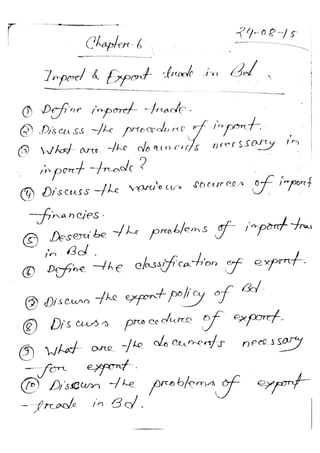 24-08-15
Chapter-6
Import & Export trade in Bd.
① Define import trade.
② Discuss the procedure of import.
③ What are the documents necessary in
import trade?
④ Discuss the various sources of import
financies.
⑤ Describe the problems of import trade
in Bd.
⑥ Define the classification of export.
⑦ Discuss the export policy of Bd.
⑧ Discuss procedure of export.
⑨ What are the documents necessary
for export.
⑩ Discuss the problems of export
trade in Bd.